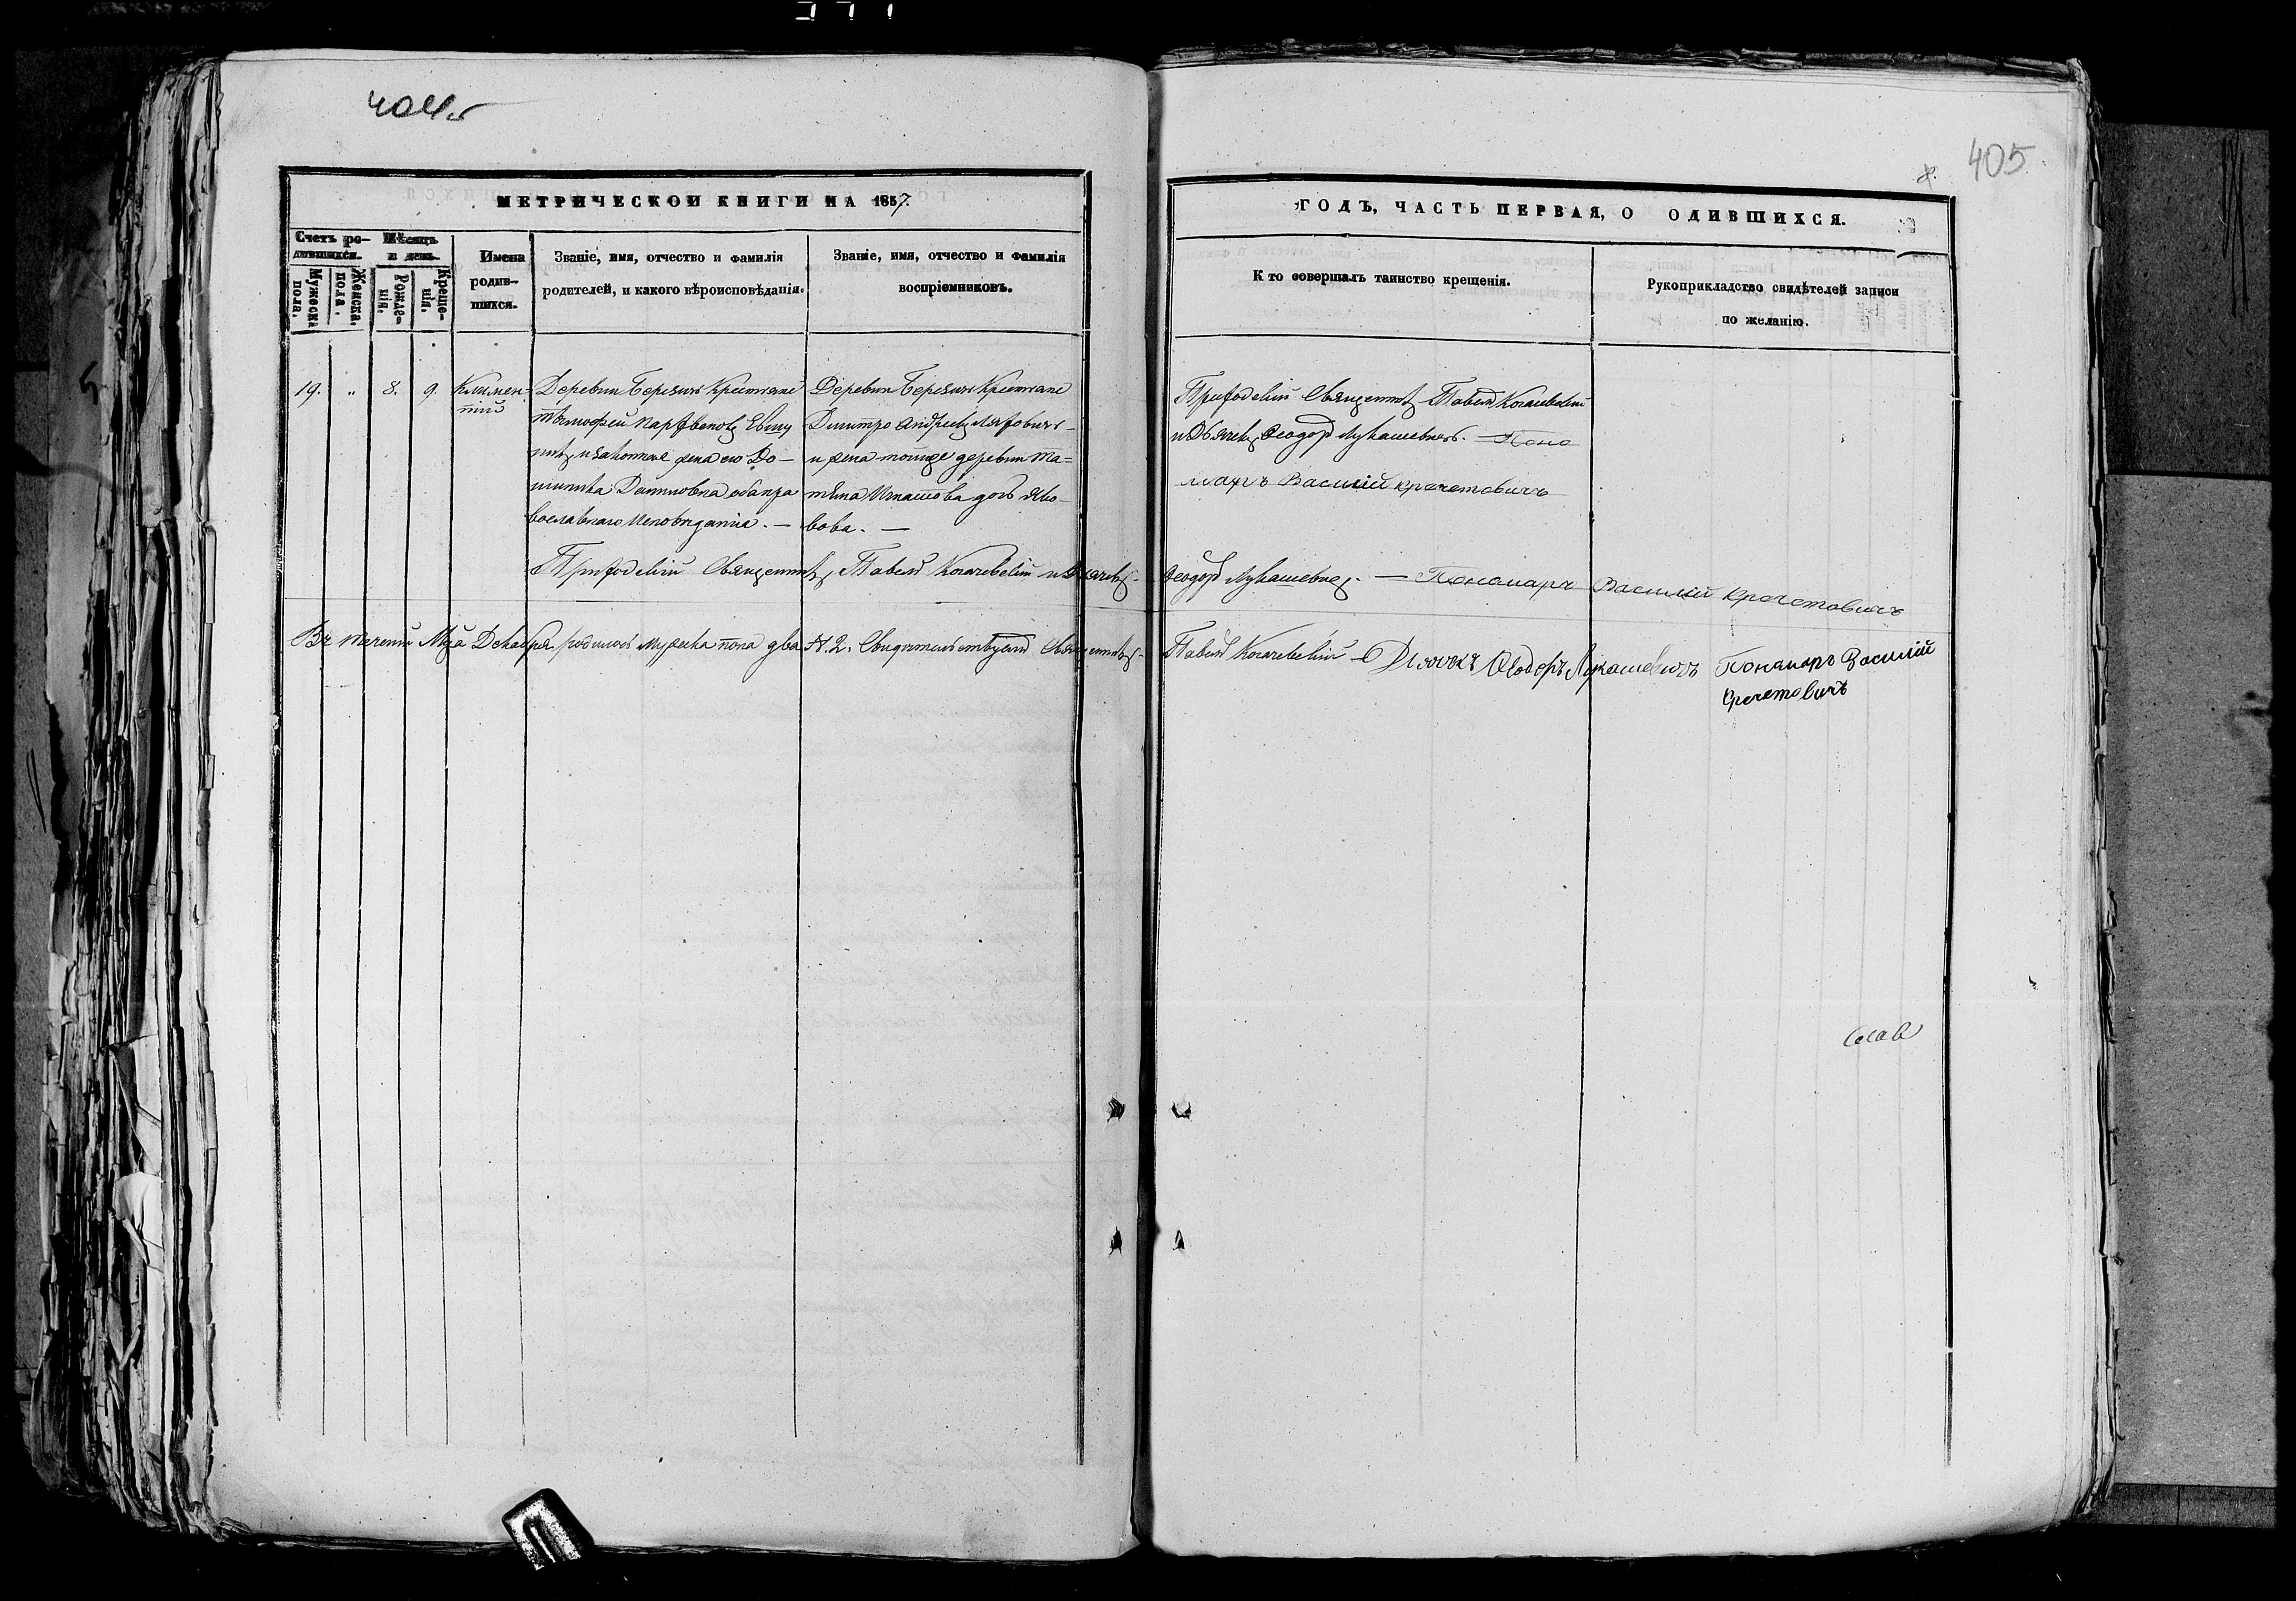 404
405
МЕТРИЧЕСКОЙ КНИГИ НА 1857.
ГОДЪ, ЧАСТЬ ПЕРВАЯ, О ОДИВШИХСЯ.
Счетъ ро-
дившихся.
Мѣсяцъ
и день.
Мужеска
пола.
Женска.
пола.
Рожде-
нія.
Креще-
нія.
Имена
родив-
шихся.
Званіе, имя, отчество и фамилія
родителей, и какого вѣроисповѣданія.
Званіе, имя, отчество и фамилія
воспріемниковъ.
Кто совершалъ таинство крещенія.
Рукоприкладство свидѣтелей записи
по желанію.
19. „ 8. 9.
Климен-
тій
Деревни Крестьяне
Тимофей Парфеновъ
и законная жена его До-
Даниловна оба пра
вославнаго исповѣданія. —
Деревни Крестьяне
Дмитро Андреевъ
и жена тоище деревни Та-
тьяна дочь Яко-
вова. —
Приходскій Священникъ Павелъ
и Дьячекъ Ѳеодоръ Лукашевичъ. — Поно
марь Василий Кречетовичъ
Приходскій Священникъ, Павелъ и Дьячекъ Ѳеодоръ Лукашевичъ. — Пономарь Василий Кречетовичъ
Въ теченіи Мца Декабря родилось мужеска пола два № 2. Свидѣтельствуемъ Священникъ Павелъ Дьячокъ Ѳеодоръ Лукашевичъ Пономаръ Василій
Кречетовичъ